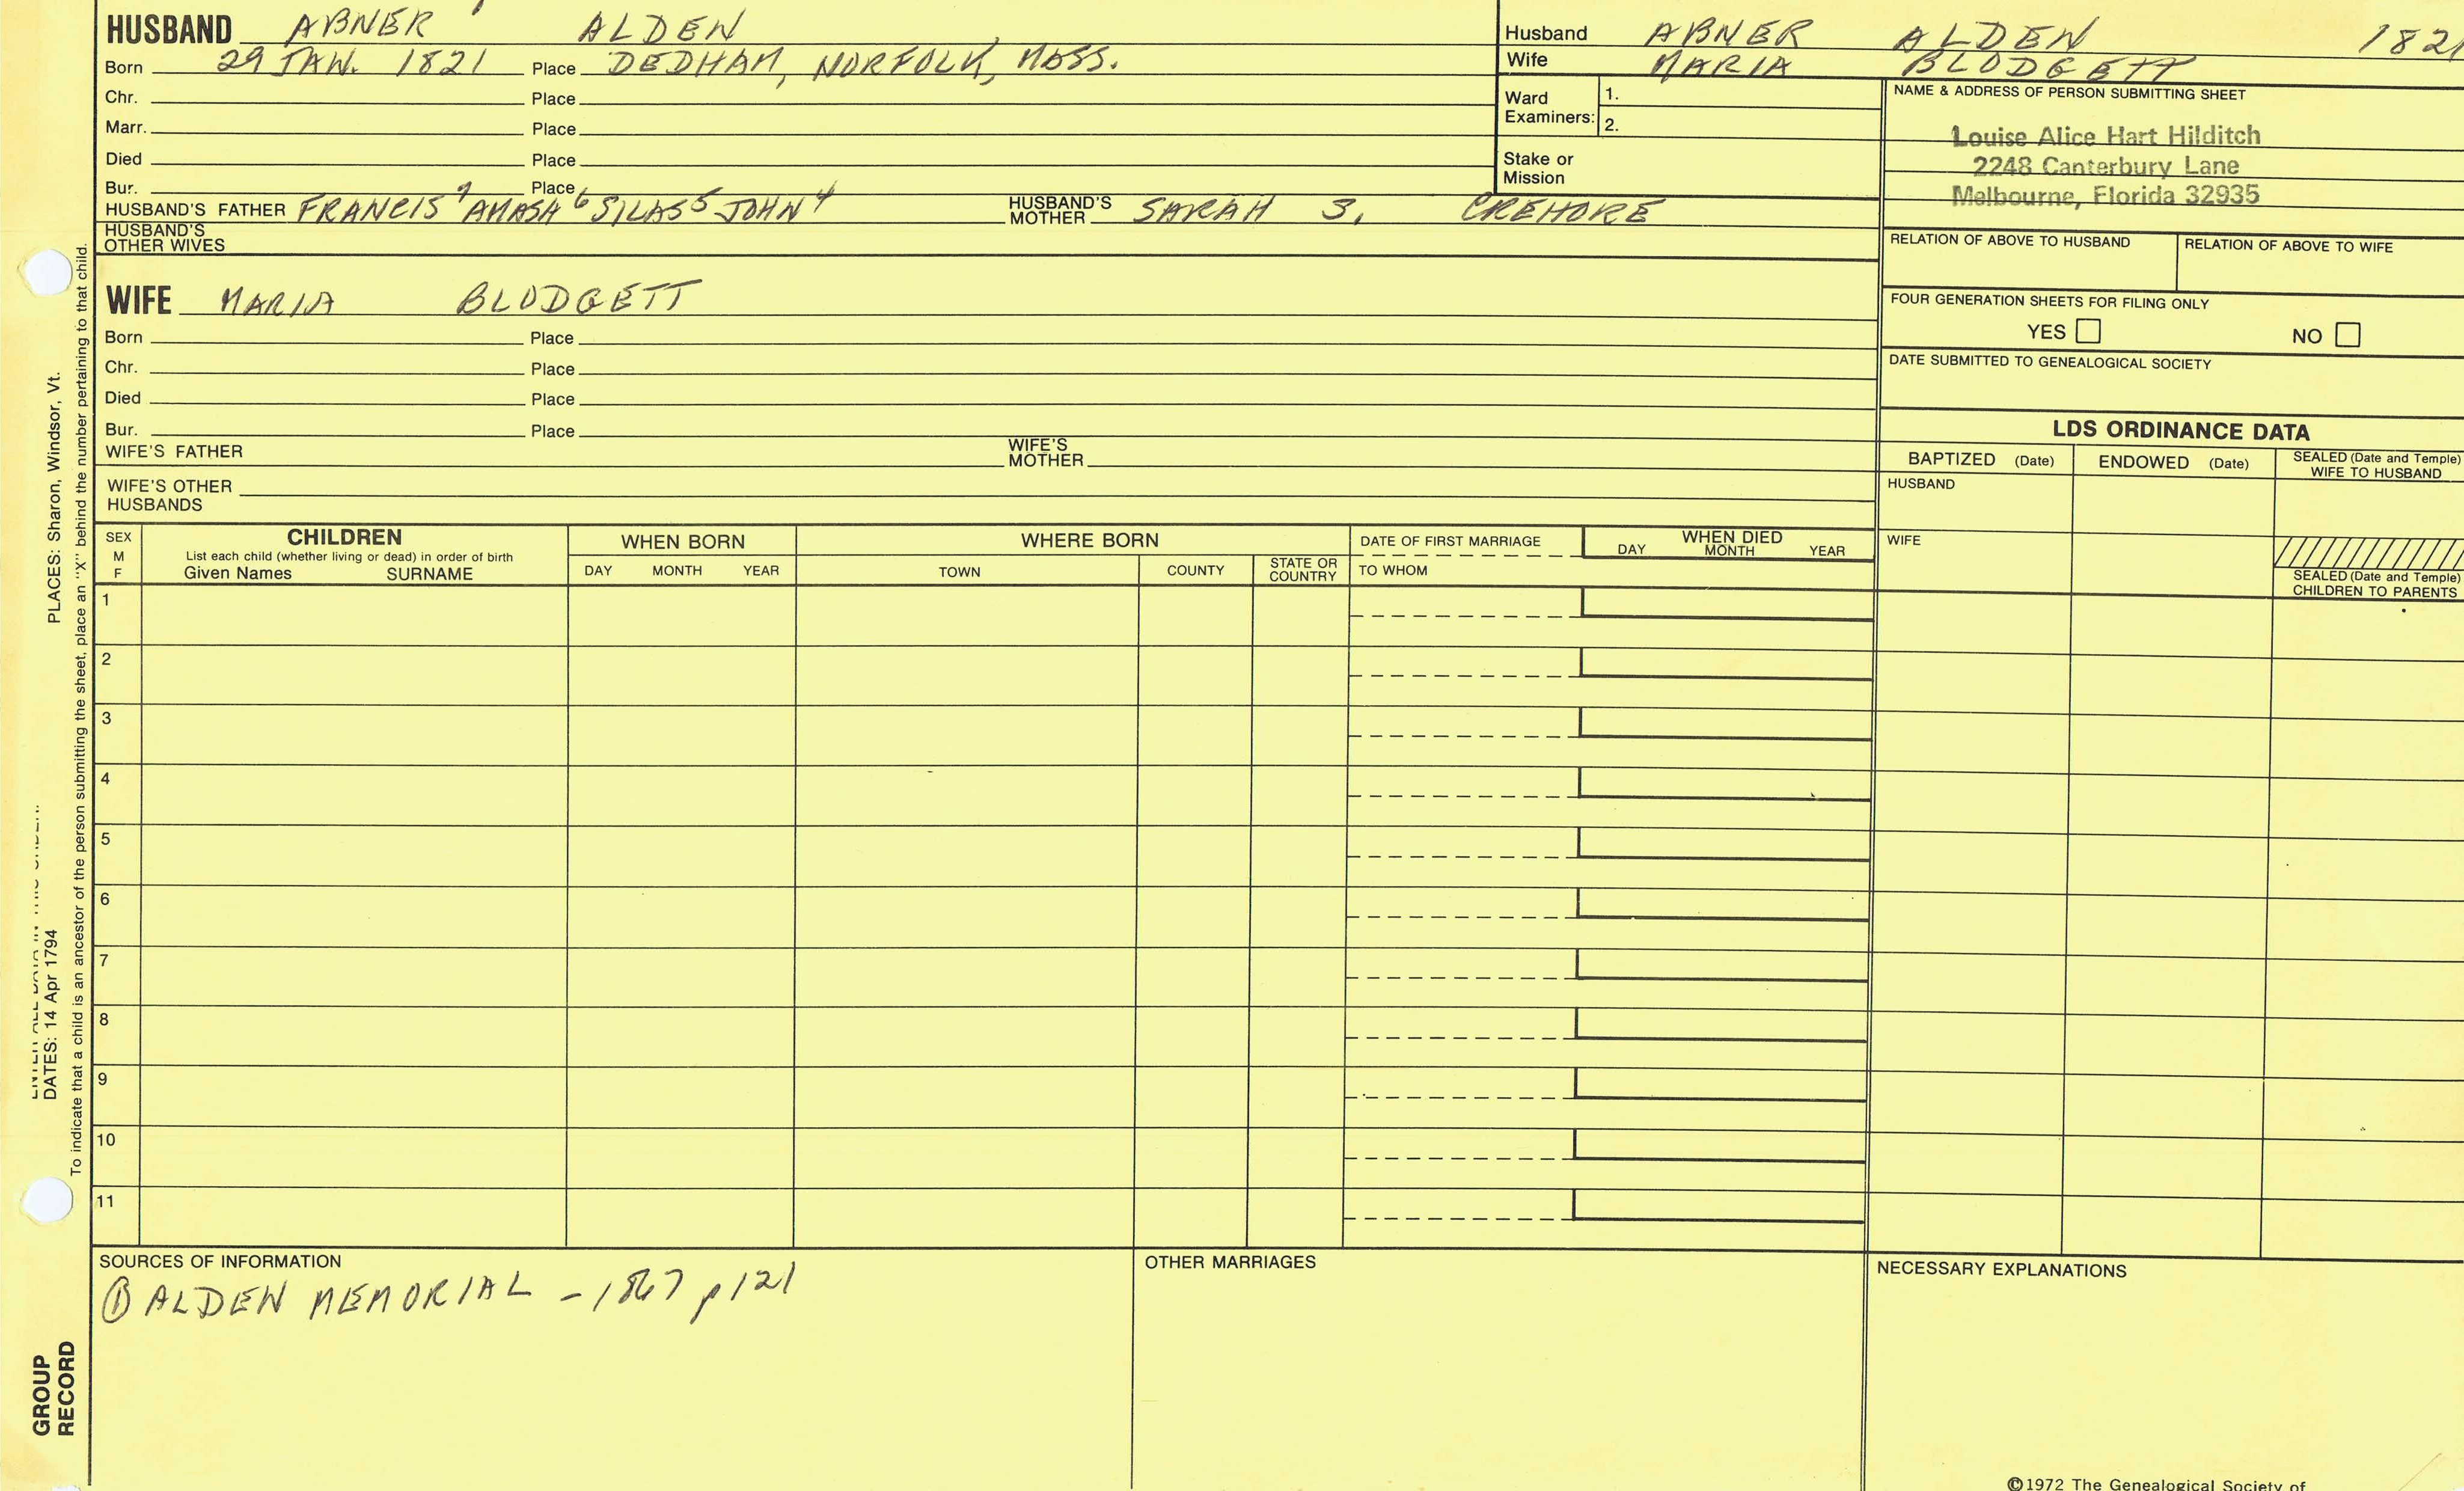 HUSBAND ABNER ALDEN
Born 29 JAN. 1821 Place DEDHAM, NORFOLK, MASS.
Chr. Place
Marr. Place
Died Place
Bur. Place
HUSBAND'S FATHER FRANCIS⁷ AMASA⁶ SILAS⁵ JOHN⁴ HUSBAND'S MOTHER SARAH S. CREHORE
HUSBAND'S OTHER WIVES
WIFE MARIA BLODGETT
Born Place
Chr. Place
Died Place
Bur. Place
WIFE'S FATHER WIFE'S MOTHER
WIFE'S OTHER HUSBANDS
Husband ABNER ALDEN 1821
Wife MARIA BLODGETT
Ward Examiners: 1.
2.
Stake or Mission
NAME & ADDRESS OF PERSON SUBMITTING SHEET
Louise Alice Hart Hilditch
2248 Canterbury Lane
Melbourne, Florida 32935
RELATION OF ABOVE TO HUSBAND RELATION OF ABOVE TO WIFE
FOUR GENERATION SHEETS FOR FILING ONLY
YES NO
DATE SUBMITTED TO GENEALOGICAL SOCIETY
LDS ORDINANCE DATA
BAPTIZED (Date) ENDOWED (Date) SEALED (Date and Temple) WIFE TO HUSBAND
HUSBAND
WIFE
SEALED (Date and Temple) CHILDREN TO PARENTS
SEX M F
CHILDREN
List each child (whether living or dead) in order of birth
Given Names SURNAME
WHEN BORN
DAY MONTH YEAR
WHERE BORN
TOWN COUNTY STATE OR COUNTRY
DATE OF FIRST MARRIAGE
TO WHOM
WHEN DIED
DAY MONTH YEAR
1
2
3
4
5
6
7
8
9
10
11
SOURCES OF INFORMATION
① ALDEN MEMORIAL - 1867 p121
OTHER MARRIAGES
NECESSARY EXPLANATIONS
©1972 The Genealogical Society of
PLACES: Sharon, Windsor, Vt.
DATES: 14 Apr 1794
To indicate that a child is an ancestor of the person submitting the sheet, place an "X" behind the number pertaining to that child.
GROUP
RECORD